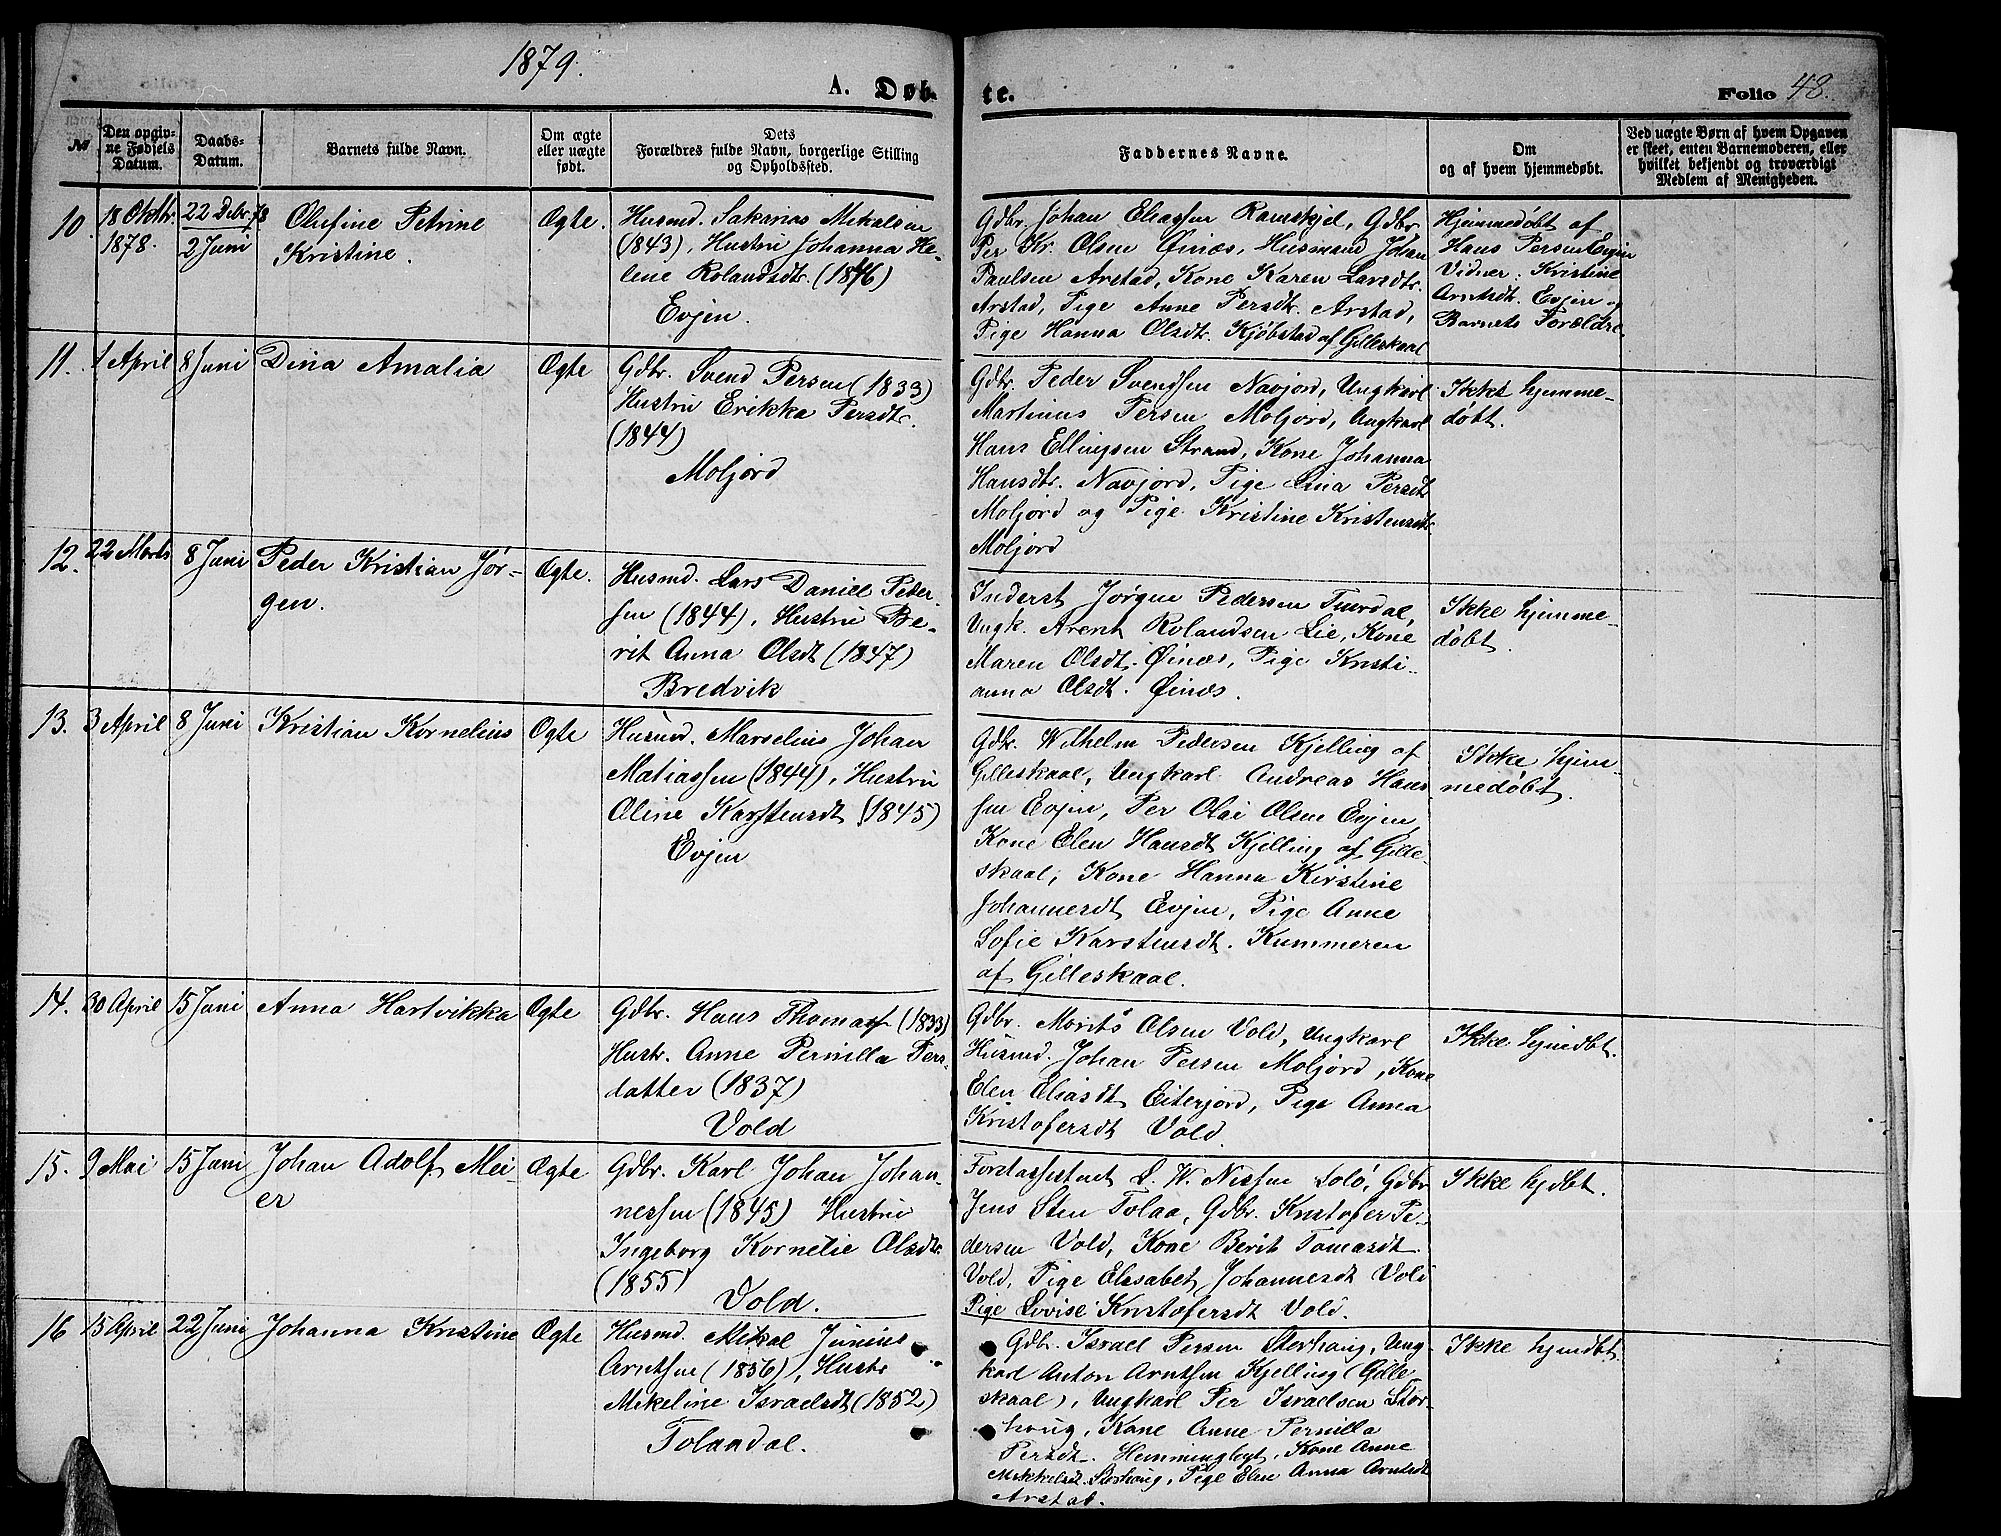 1879.
A. Døb-
te.
Folio 48.
№
Den opgiv-
ne Fødsels
Datum.
Daabs-
Datum.
Barnets fulde Navn.
Om ægte
eller uægte
født.
Dets
Forældres fulde Navn, borgerlige Stilling
og Opholdssted.
Faddernes Navne.
Om
og af hvem hjemmedøbt.
Ved uægte Børn af hvem Opgaven
er skeet, enten Barnemoderen, eller
hvilket bekjendt og troværdigt
Medlem af Menigheden.
10.
18 Oktbr.
1878.
22 Debr. 78
2 Juni
Olufine Petrine
Kristine.
Ægte.
Husmd. Sakarias Mekalsen
(1843), Hustru Johanna He-
lene Rolandsdtr. (1846)
Evjen.
Gdbr. Johan Eliassen Ramskjel, Gdbr.
Per Kr. Olsen Øinæs, Husmand Johan
Paulsen Arstad, Kone Karen Larsdtr.
Arstad, Pige Anne Persdtr. Arstad,
Pige Hanna Olsdtr. Kjøbstad af Gilleskaal
Hjemmedøbt af
Hans Persen Evjen
Vidner: Kristine
Arntsdt. Evjen og
Barnets Forældre.
11.
1 April
8 Juni
Dina Amalia
Ægte
Gdbr. Svend Persen (1833)
Hustru Erikka Persdtr.
(1844)
Moljord
Gdbr. Peder Svendsen Navjord, Ungkarl
Martinus Persen Moljord, Ungkarl
Hans Ellingsen Strand, Kone Johanna
Hansdtr. Navjord, Pige Lina Persdt
Moljord og Pige Kristine Kristensdtr.
Moljord
Ikke hjemme-
døbt.
12.
22 Marts
8 Juni
Peder Kristian Jør-
gen.
Ægte.
Husmd. Lars Daniel Peder-
sen (1844), Hustru Be-
rit Anna Olsdt (1847)
Bredvik
Inderst Jørgen Pedersen Tverdal,
Ungk. Arent Rolandsen Lie, Kone
Maren Olsdt. Øinæs, Pige Kristi-
anna Olsdt. Øinæs.
Ikke hjemme-
døbt.
13.
3 April
8 Juni
Kristian Kornelius
Ægte
Husmd. Marselius Johan
Matiassen (1844), Hustru
Oline Karstensdt (1845)
Evjen
Gdbr. Wilhelm Pedersen Kjelling af
Gilleskaal, Ungkarl Andreas Han-
sen Evjen, Per Olai Olsen Evjen,
Kone Elen Hansdt Kjelling af Gille-
skaal, Kone Hanna Kirstine
Johannesdt Evjen, Pige Anne
Sofie Karstensdt. Kummeren
af Gilleskaal.
Ikke hjem-
medøbt.
14.
30 April
15 Juni
Anna Hartvikka
Ægte
Gdbr. Hans Thomass (1833)
Hustr. Anne Pernilla Pers-
datter (1837)
Vold
Gdbr. Morits Olsen Vold, Ungkarl
Husmd. Johan Persen Moljord, Kone
Elen Eliasdt Eiterjord, Pige Anna
Kristofersdt Vold.
Ikke hjmdbt.
15.
9 Mai
15 Juni
Johan Adolf Mei-
er
Ægte
Gdbr. Karl Johan Johan-
nessen (1845) Hustru
Ingeborg Kornelie Olsdtr.
(1855)
Vold.
Forstassistent L. W. Nissen Solö, Gdbr.
Jens Sten Tolaa, Gdbr. Kristofer Pe-
dersen Vold, Kone Berit Tomasdt.
Vold, Pige Elisabet Johannesdt Vold
Pige Lovise Kristofersdt Vold.
Ikke hjdbt.
16
15 April
22 Juni
Johanna Kristine
Ægte
Husmd. Mikal Junius
Arntsen (1856), Hustr
Mikeline Israelsdt (1852)
Tolaadal.
Gdbr. Israel Persen Storhaug, Ung-
karl Anton Arntsen Kjelling (Gille-
skaal), Ungkarl Per Israelsen Stor-
haug, Kone Anne Pernilla
Persdt. Hemminghyt, Kone Anne
Mikkelsd. Storhaug, Pige Elen Anna Arntsdt
Arstad.
Ikke hjmdbt.